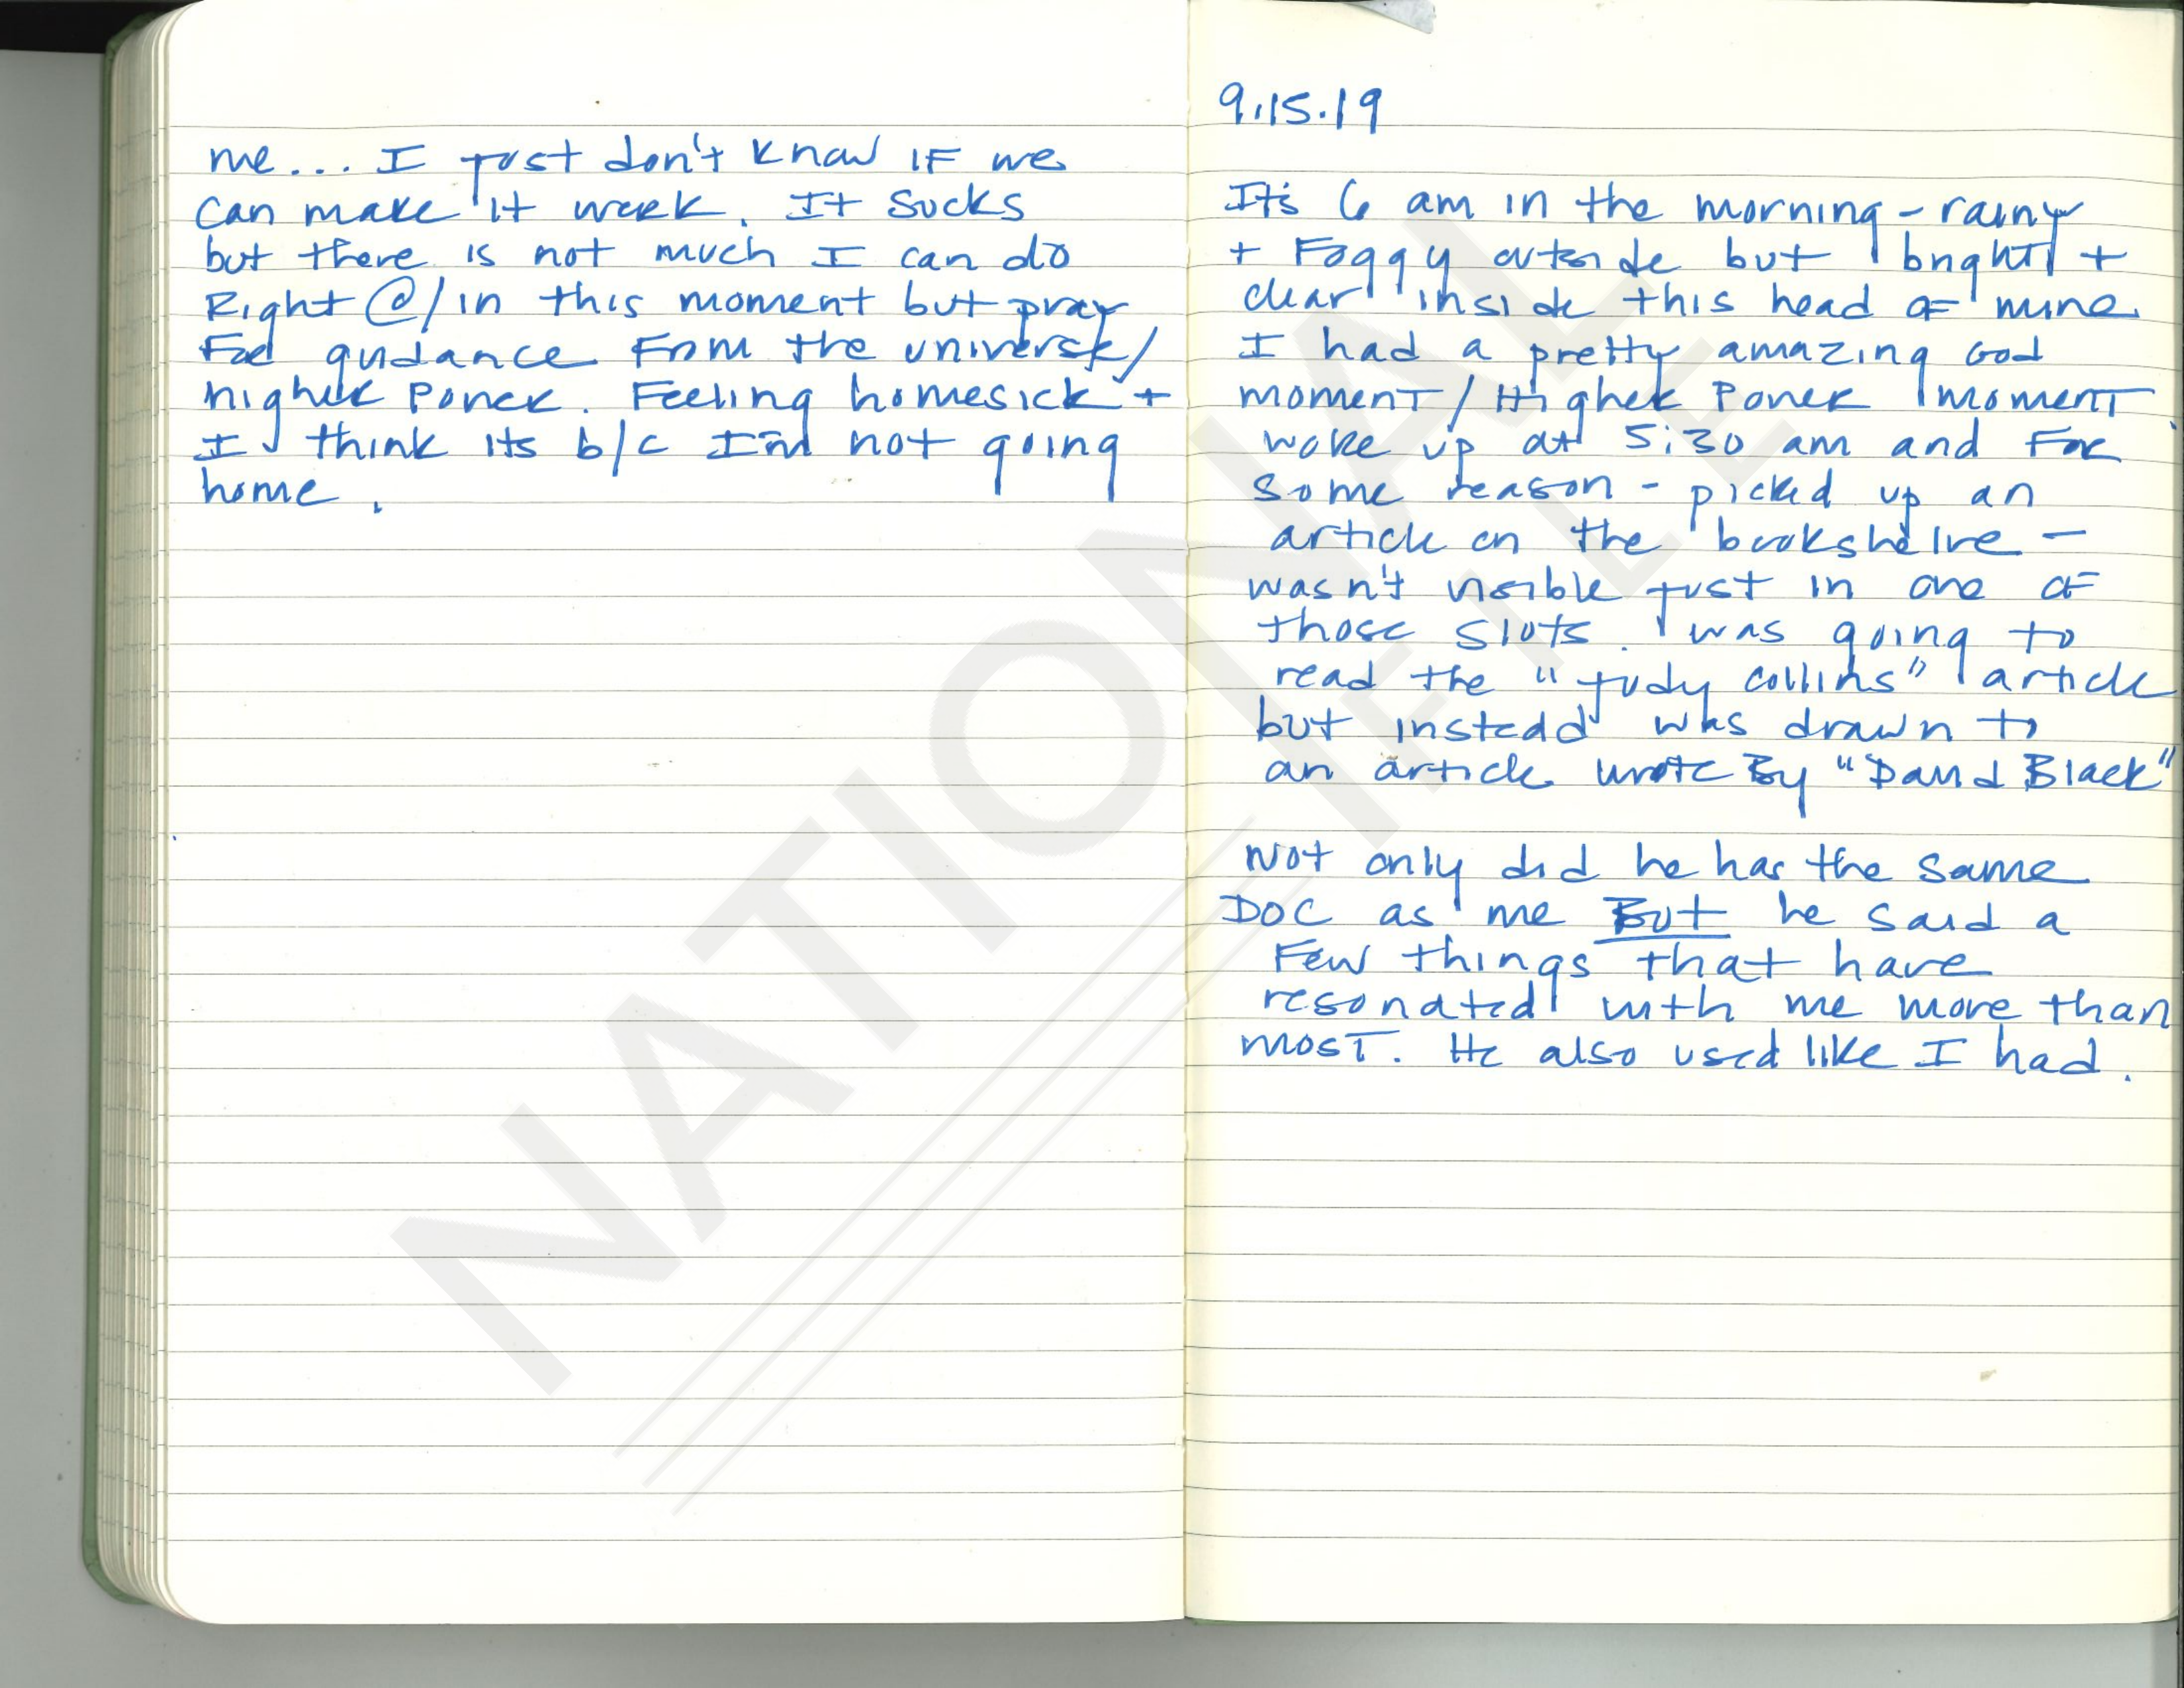 me... I just don't know IF we
can make it work. It sucks
but there is not much I can do
Right @/in this moment but pray
For guidance From the universe/
higher Power. Feeling homesick +
I think its b/c I'm not going
home.
9.15.19
It's 6 am in the morning - rainy
+ Foggy outside but bright +
clear inside this head of mine.
I had a pretty amazing God
moment/Higher Power moment
woke up at 5:30 am and For
some reason - picked up an
article on the bookshelve -
wasn't visible just in one of
those slots. I was going to
read the "Judy Collins" article
but instead was drawn to
an article wrote By "David Black"
Not only did he has the same
DOC as me But he said a
Few things that have
resonated with me more than
most. He also used like I had.
NATIONAL
FILE